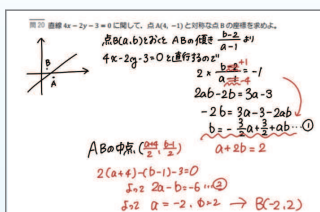 問20 直線 4x－2y－3＝0 に関して、点A(4, －1) と対称な点 B の座標を求めよ。
点B(a.b)とおくと ABの傾き b-2/a-1 より
4x-2y-3=0と直行するので
2 × b-2/a-1 = -1
+1
-4
2ab-2b=3a-3
-2b=3a-3-2ab
b=-3/2a+3/2+ab…①
a+2b=2
B
A
ABの中点(a+4/2, b-1/2)
2(a+4)-(b-1)-3=0
よって 2a-b=-6…②
よって a=-2, b=2 → B(-2,2)